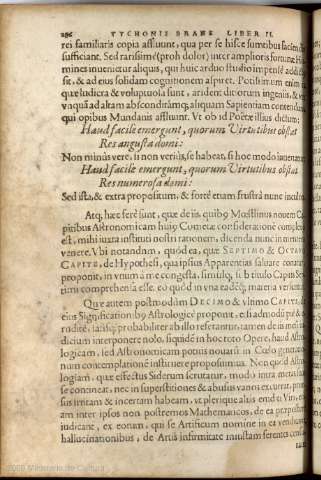 286 TYCHONIS BRAHE LIBER II.
rei familiaris copia affluunt, qua per se hisce sumtibus
sufficiant. Sed rarissimè (proh dolor) inter amplioris fortunæ
mines inuenitur aliquis, qui huic arduo studio impensè addi
sit, & ad eius solidam cognitionem aspiret. Potissimum enim
quæ ludicra & voluptuosa sunt, arident ditiorum ingenijs, &
vnquã ad altam absconditámq; aliquam Sapientiam
qui opibus Mundanis affluunt. Vt ob id Poëtæ illius dictum:
Haud facile emergunt, quorum Virtutibus obstat
Res angusta domi:
Non minùs verè, si non veriùs, se habeat, si hoc modo
Haud facile emergunt, quorum Virtutibus obstat
Res numerosa domi:
Sed ista, & extra propositum, & fortè etiam frustrà nunc
Atq; hæc ferè sunt, quæ de ijs, quibq Mœstlinus nouem
pitibus Astronomicam huiq Cometæ considerationē
est, mihi iuxta instituti nostri rationem, dicenda nunc in
venere. Vbi notandum, quòd ea, quæ SEPTIMO & OCTAVO
CAPITE, de Hypothesi, qua ipsus Apparentias saluare
proponit, in vnum à me congesta, simulq; sub titulo Capitis
timi comprehensa esse, eo quòd in vna eadēq; materia
Quæ autem postmodùm DECIMO & vltimo CAPITE, de
eius Significationibq Astrologicè proponit, etsi admodū piè &
ruditè, iustisq; probabiliter ab illo referantur, tamen de ijs
dicium interponere nolo, siquidē in hoc toto Opere, haud
logicam, sed Astronomicam potius nouarū in Cœlo
num contemplationē instituere proposuimus. Non quòd
logiam, quæ effectus Siderum scrutatur, modo intra metas
se contineat, nec in superstitiones & abusus vanos excurrat,
sus irritam & incertam habeam, vt plerique alias
am inter ipsos non postremos Mathematicos, de ea
iudicant, ex eorum, qui se Artificum nomine in ea
hallucinationibus, de Artis infirmitate iniustam ferentes
2009 Ministerio de Cultura